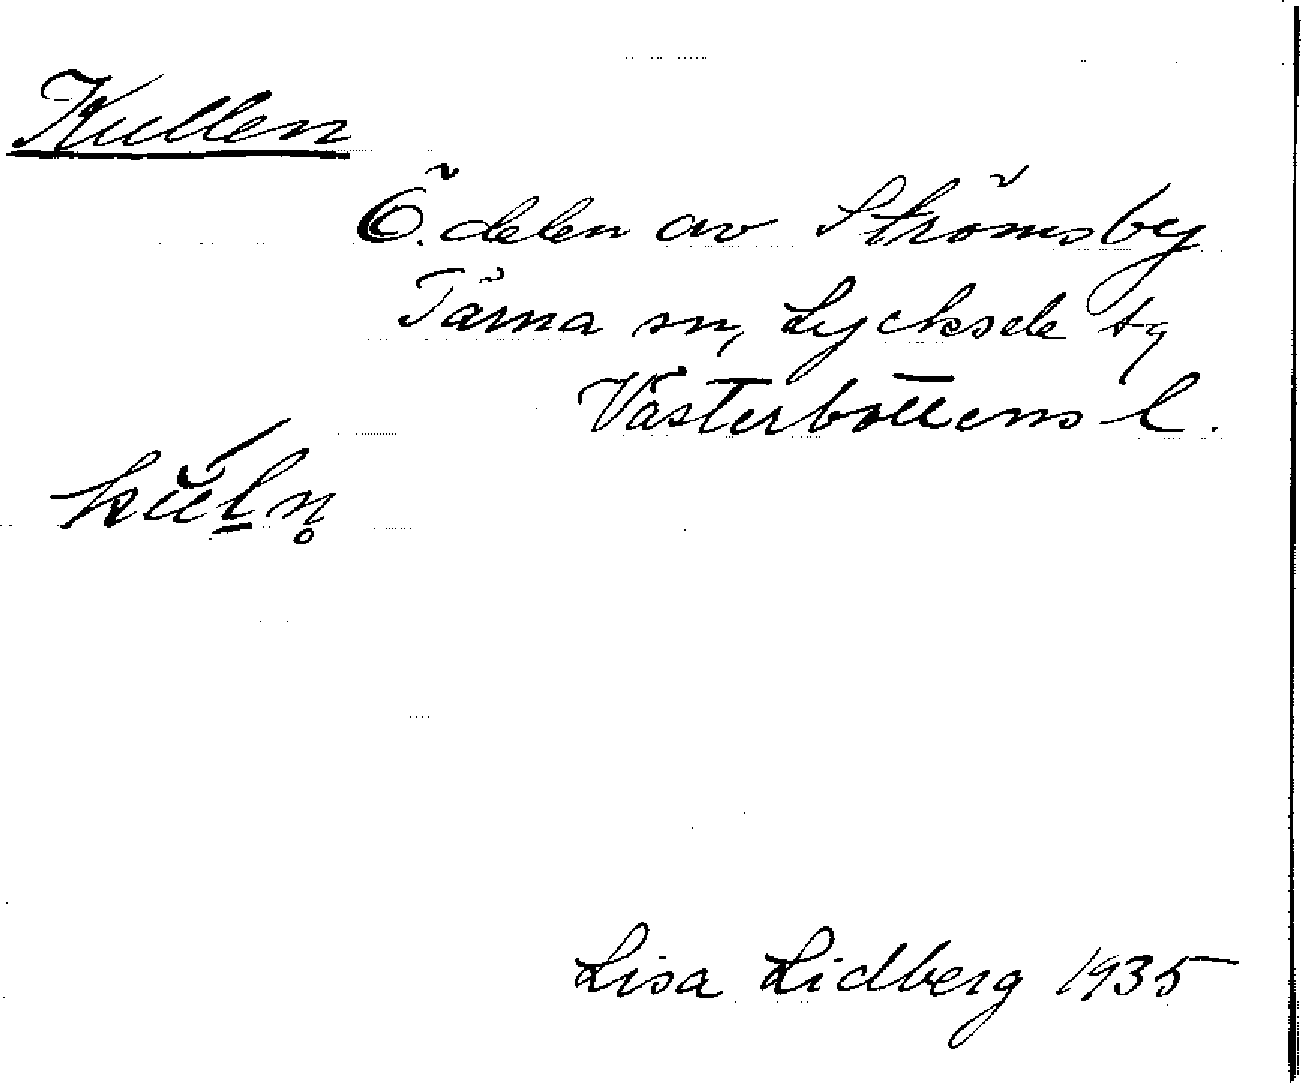 Kullen
Ö. delen av Strömsby
Tärna sn, Lycksele tg
Västerbottens l.
kŭl̲n̥
Lisa Lidberg 1935